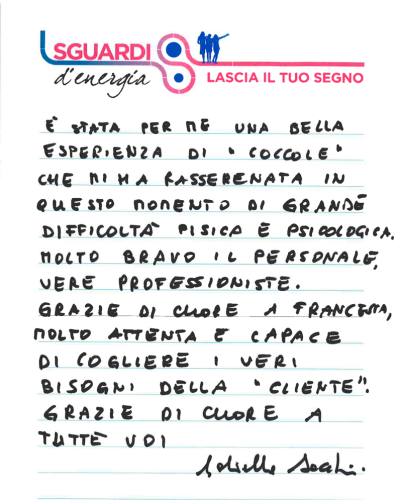 SGUARDI
d'energia
LASCIA IL TUO SEGNO
È STATA PER ME UNA BELLA
ESPERIENZA DI "COCCOLE"
CHE MI HA RASSERENATA IN
QUESTO MOMENTO DI GRANDE
DIFFICOLTÀ FISICA E PSICOLOGICA.
MOLTO BRAVO IL PERSONALE,
VERE PROFESSIONISTE.
GRAZIE DI CUORE A FRANCESCA,
MOLTO ATTENTA E CAPACE
DI COGLIERE I VERI
BISOGNI DELLA "CLIENTE".
GRAZIE DI CUORE A
TUTTE VOI